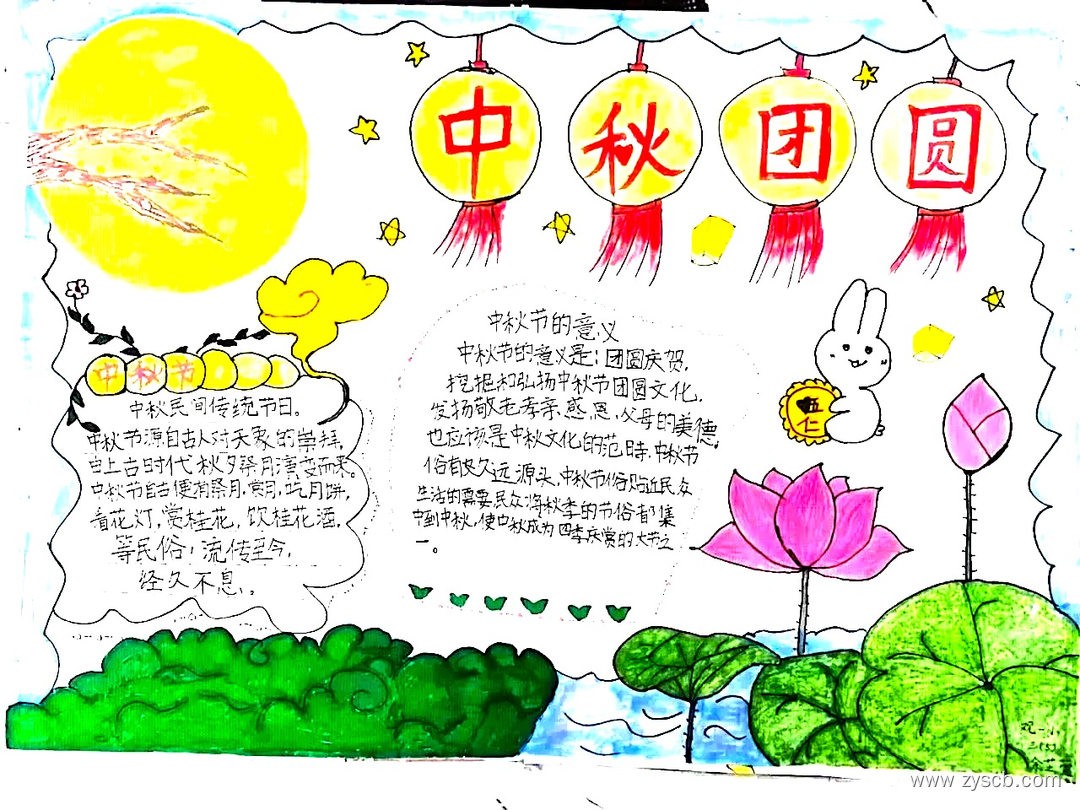 中秋团圆
中秋节
中秋民间传统节日。
中秋节源自古人对天象的崇拜,
由上古时代秋夕祭月演变而来。
中秋节自古便有祭月,赏月,吃月饼,
看花灯,赏桂花,饮桂花酒,
等民俗,流传至今,
经久不息。
中秋节的意义
中秋节的意义是:团圆庆贺,
挖掘和弘扬中秋节团圆文化,
发扬敬老孝亲,感恩,父母的美德,
也应该是中秋文化的范畤,中秋节
俗有悠久远源头,中秋节俗贴近民众
生活的需要民众将秋季的节俗都集
中到中秋,使中秋成为四季庆赏的大节之
一。
五仁
www.zyscb.com